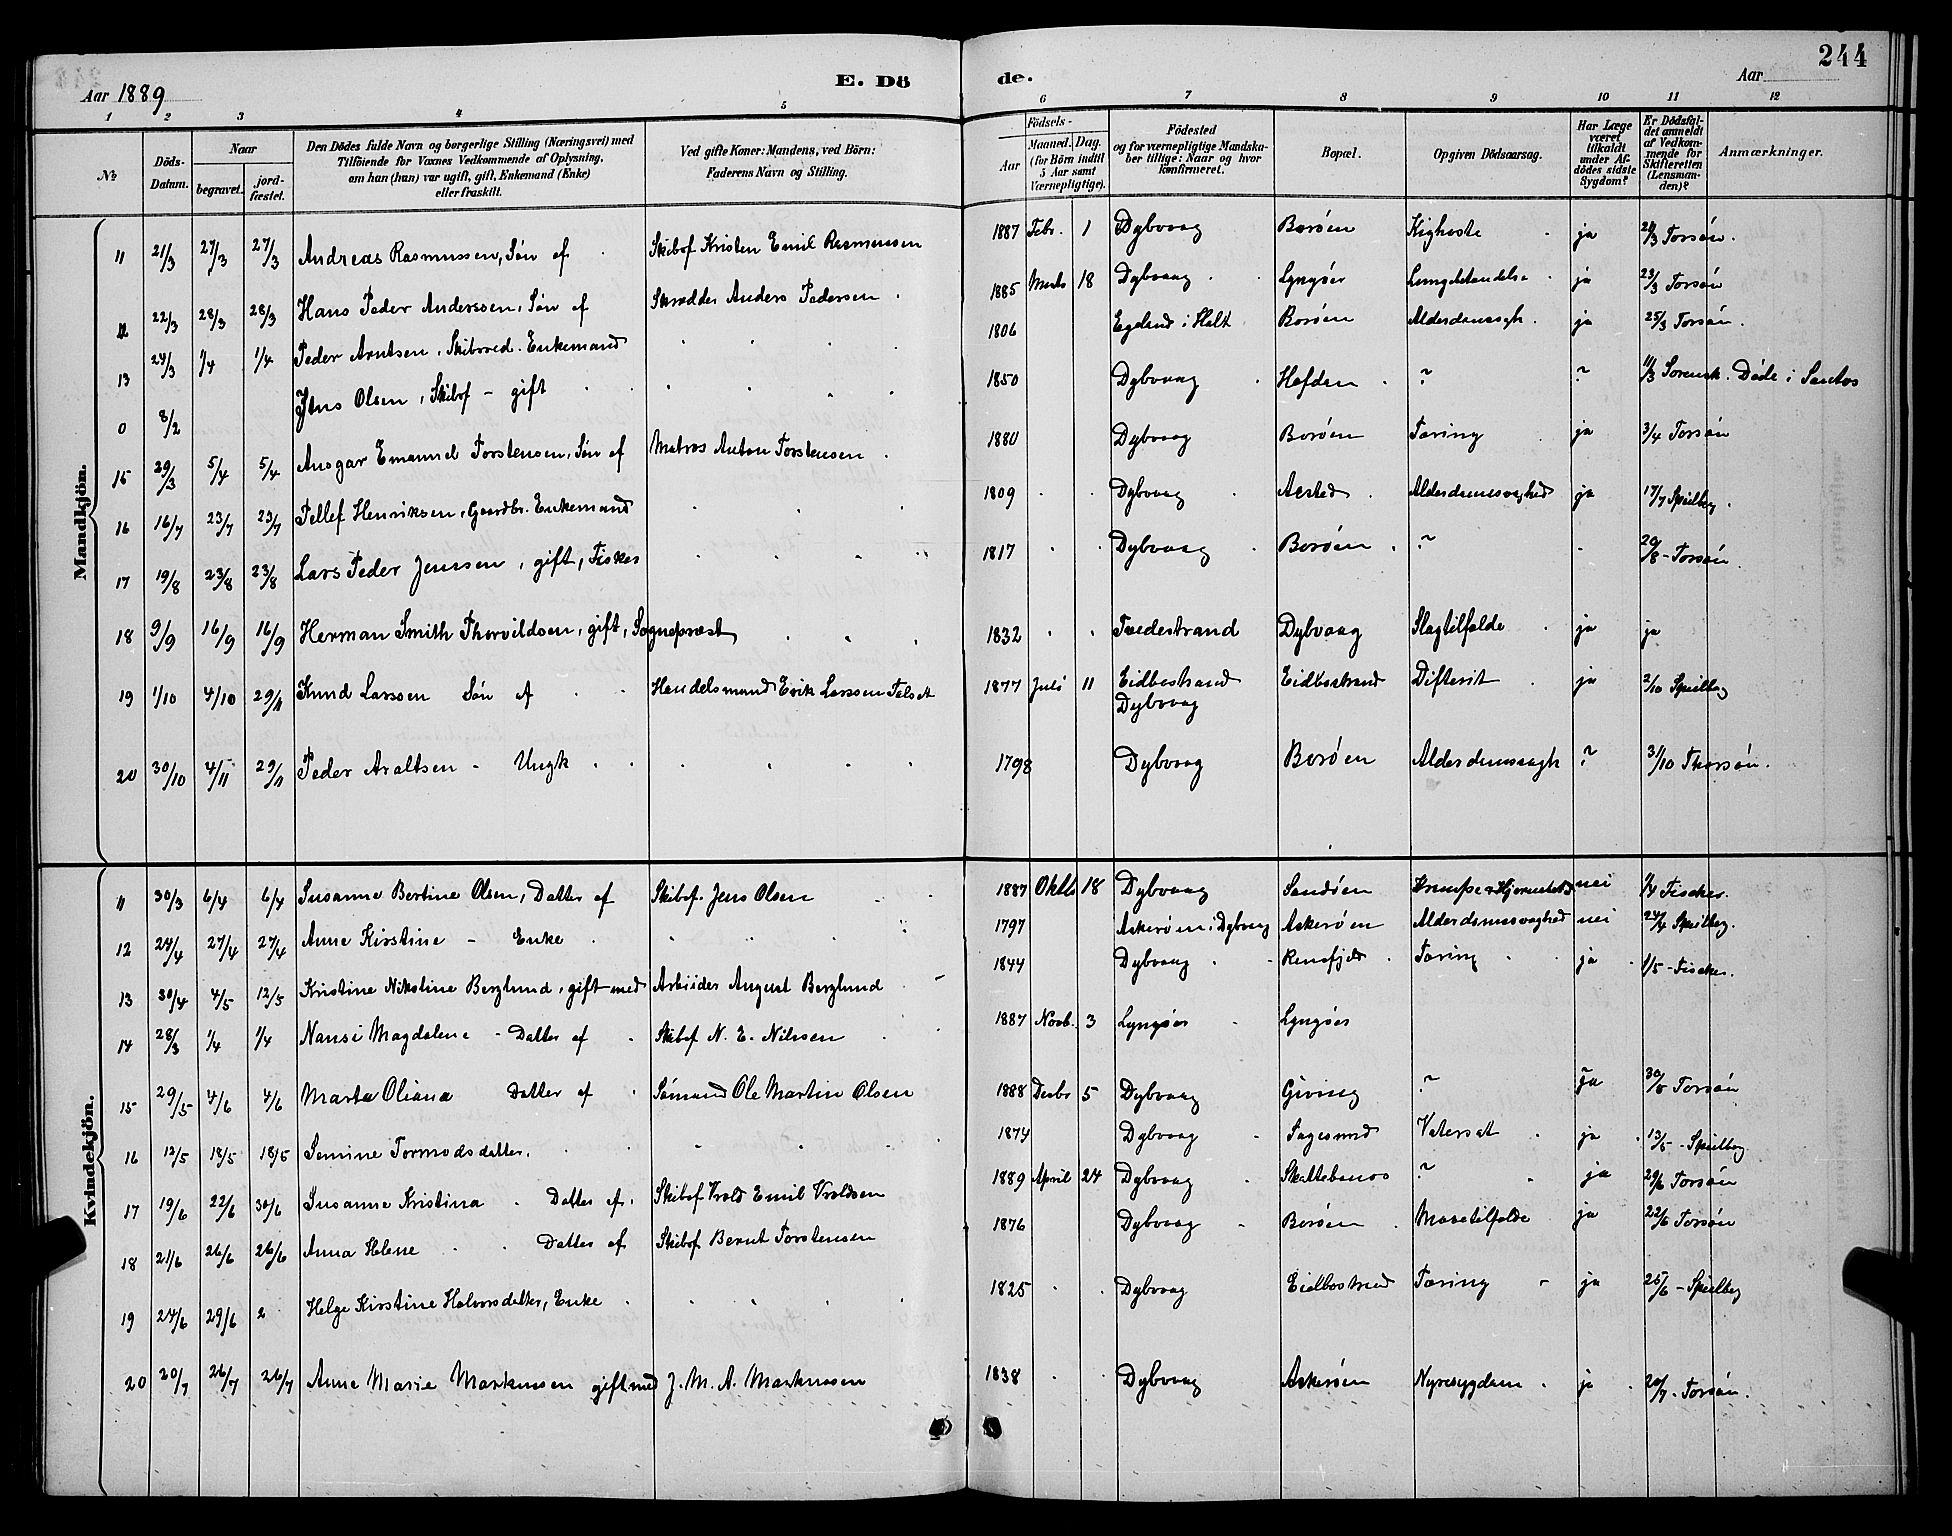 244
Aar 1889 E. Dö de. Aar
1 2 3 4 5 6 7 8 9 10 11 12
No
Döds-Datum.
Naar
begravet.
jord-fæstet.
Den Dödes fulde Navn og borgerlige Stilling (Næringsvei) med
Tilföiende for Voxnes Vedkommende af Oplysning,
om han (hun) var ugift, gift, Enkemand (Enke)
eller fraskilt.
Ved gifte Koner: Mandens, ved Börn:
Faderens Navn og Stilling.
Födsels-
Aar
Maaned. Dag.
(for Börn indtil
5 Aar samt
Værnepligtige).
Födested
og for værnepligtige Mandska-
ber tillige: Naar og hvor
konfirmeret.
Bopæl.
Opgiven Dödsaarsag.
Har Læge
været
tilkaldt
under Af-
dödes sidste
Sygdom?
Er Dödsfal-
det anmeldt
af Vedkom-
mende for
Skifteretten
(Lensman-
den)?
Anmærkninger.
Mandkjön.
11 21/3 27/3 27/3 Andreas Rasmussen, Søn af Skibsf Kristen Emil Rasmussen 1887 Febr. 1 Dybvaag Borøen Kighoste ja Torsøn.
12 22/3 28/3 28/3 Hans Peder Anderssen, Søn af Skrædder Anders Pedersen 1885 Marts 18 Dybvaag Lyngøer Lungebetændelse ja 23/3 Torsøn
13 24/3 1/4 1/4 Peder Arntsen, Skibsred. Enkemand 1806 Egeland i Holt Borøen Alderdomssvagh. ja 25/3 Torsøn.
0 8/2 Jens Olsen, Skibsf - gift 1850 Dybvaag Hofden ? ? 11/3 Sorensk. Døde i Santos
15 29/3 5/4 5/4 Ansgar Emanuel Torstensen, Søn af Matros Anton Torstensen 1880 Dybvaag Borøen Tæring ja 3/4 Torsøn
16 16/7 23/7 23/7 Tellef Henriksen, Gaardbr. Enkemand 1809 Dybvaag Alderdomssvaghed ja 17/7 Speilberg.
17 19/8 23/8 23/8 Lars Peder Jenssen, gift, Fisker 1817 Dybvaag Borøen ? 20/8 - Torsøn.
18 9/9 16/9 16/9 Herman Smith Thorvildsen, gift, Sognepræst 1832 Tvedestrand Dybvaag Slagtilfælde ja ja
19 1/10 4/10 29/11 Knud Larssen Søn af Handelsmand Erik Larssen Falset 1877 Juli 11 Eidbostrand Dybvaag Eidbostrand Difterit ja 2/10 Speilberg
20 30/10 4/11 29/11 Peder Araltsen - Ungk 1798 Dybvaag Borøen Alderdomssvagh ? 31/10 Thorsøn.
Kvindekjön.
11 30/3 6/4 6/4 Susanne Bertine Olsen, Datter af Skibsf. Jens Olsen 1887 Oktb 18 Dybvaag Sandøen nei 1/4 Fischer.
12 24/4 27/4 27/4 Anne Kirstine - Enke 1797 Askerøen i Dybvaag Askerøen Alderdomssvaghed nei 24/4 Speilberg.
13 30/4 4/5 12/5 Kristine Nikoline Berglund, gift med Arbeider August Berglund 1844 Dybvaag Tæring ja 1/5 - Fischer.
14 28/3 1/4 1/4 Nansi Magdalene - Datter af Skibsf N. E. Nilssen 1887 Novb. 3 Lyngøer Lyngøer
15 29/5 4/6 4/6 Marta Oliana Datter af Sømand Ole Martin Olsen 1888 Decbr 5 Dybvaag Giving ? ja 30/5 Torsøn
16 12/5 18/5 18/5 Semine Tormodsdatter. 1874 Dybvaag Fagesund Vatersot ja 13/5 - Speilberg
17 19/6 22/6 30/6 Susanne Kristina Datter af Skibsf Vrold Emil Vroldsen 1889 April 24 Dybvaag ? ja 20/6 Torsøn
18 21/6 26/6 26/6 Anna Helene Datter af Skibsf Bernt Torstensen 1876 Dybvaag Borøen Mavetilfælde ja 22/6 Torsøn
19 24/6 29/6 2 Helge Kirstine Halvorsdatter, Enke 1825 Dybvaag Eidbostrand Tæring ja 25/6 - Speilberg
20 20/7 26/7 26/7 Anne Marie Markussen gift med J. M. A. Markussen 1838 Dybvaag Askerøen Nyresygdom ja 20/7. Torsøn.